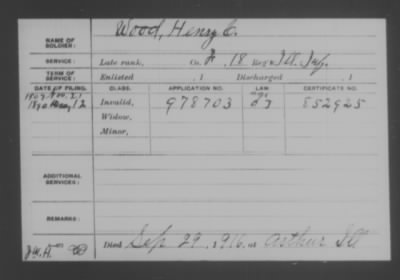 NAME OF SOLDIER: Wood, Henry C.
SERVICE: Late rank, Co. F, 18 Reg't Ill. Inf.
TERM OF SERVICE: Enlisted , 1 Discharged , 1
DATE OF FILING. CLASS. APPLICATION NO. LAW. CERTIFICATE NO.
1890 12 Invalid, 978703 852925
Widow,
Minor,
ADDITIONAL SERVICES:
REMARKS:
Died Sep 29, 1916, at Arthur Ill